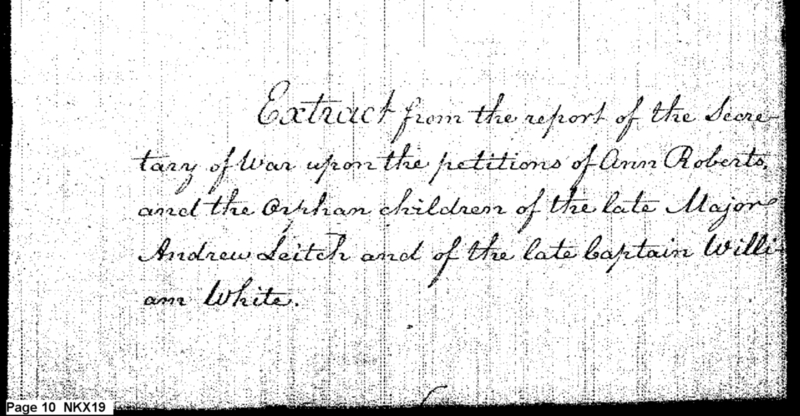 Extract from the report of the Secre-
tary of War upon the petitions of Ann Roberts,
and the Orphan children of the late Major
Andrew Leitch and of the late Captain Willi-
am White.
Page 10 NKX19